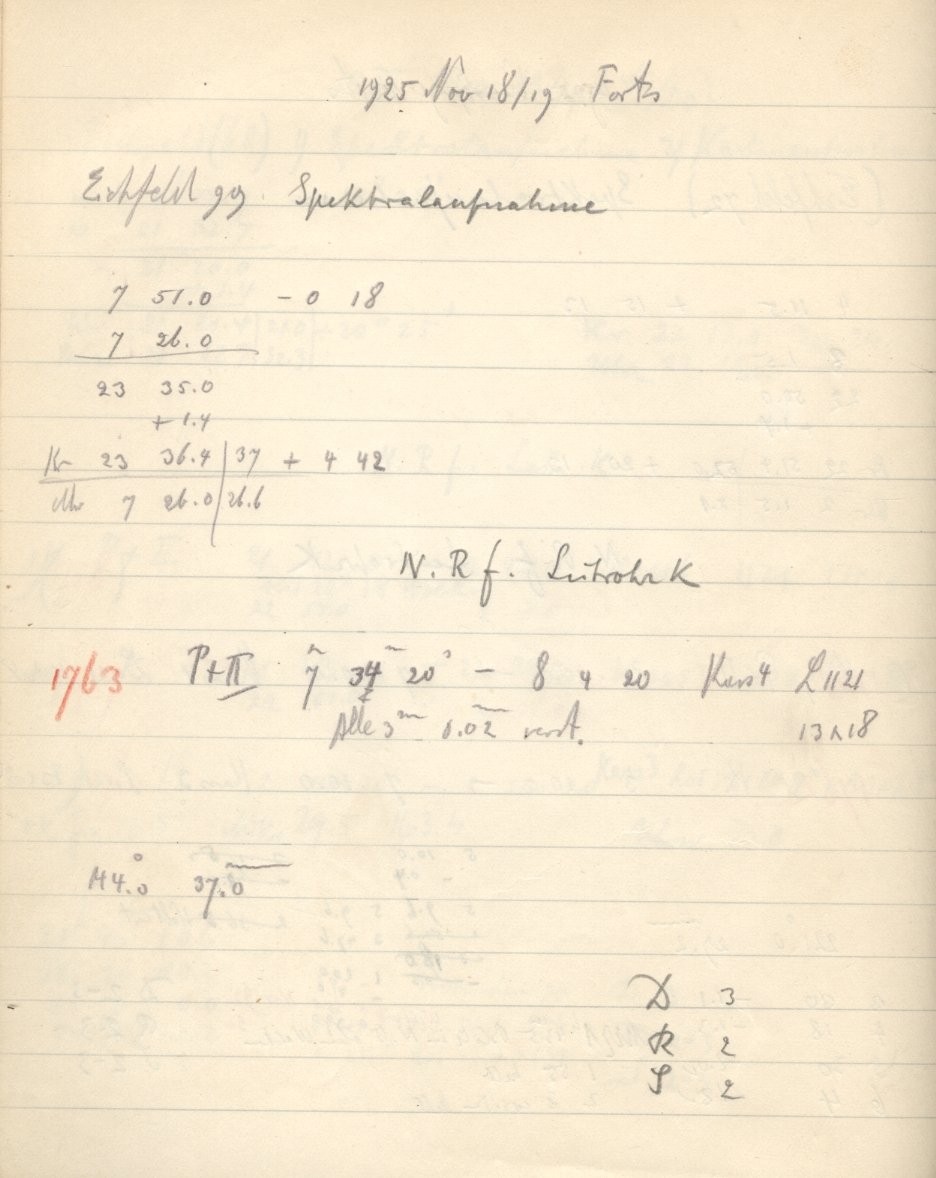 1925 Nov 18/19 Forts
Eichfeld 99. Spektralaufnahme
7 51.0 - 0 18
7 26.0
23 35.0
+ 1.4
Kr 23 36.4 | 37 + 4 42
7 26.0 | 26.6
N. R f.
1763 P+II 7 34 20 - 8 4 20 Kass 4 L 1121
Alle 3m 0.02 verst. 13 x 18
144.0° 37.0
D 3
R 2
S 2